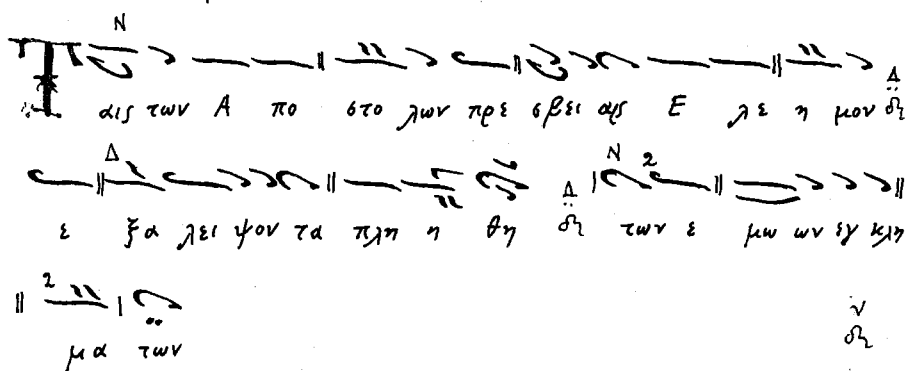 Ταις των Α πο στο λων πρε σβει αις Ε λε η μον
ε ξα λει ψον τα πλη η θη των ε μω ων εγ κλη
μα των